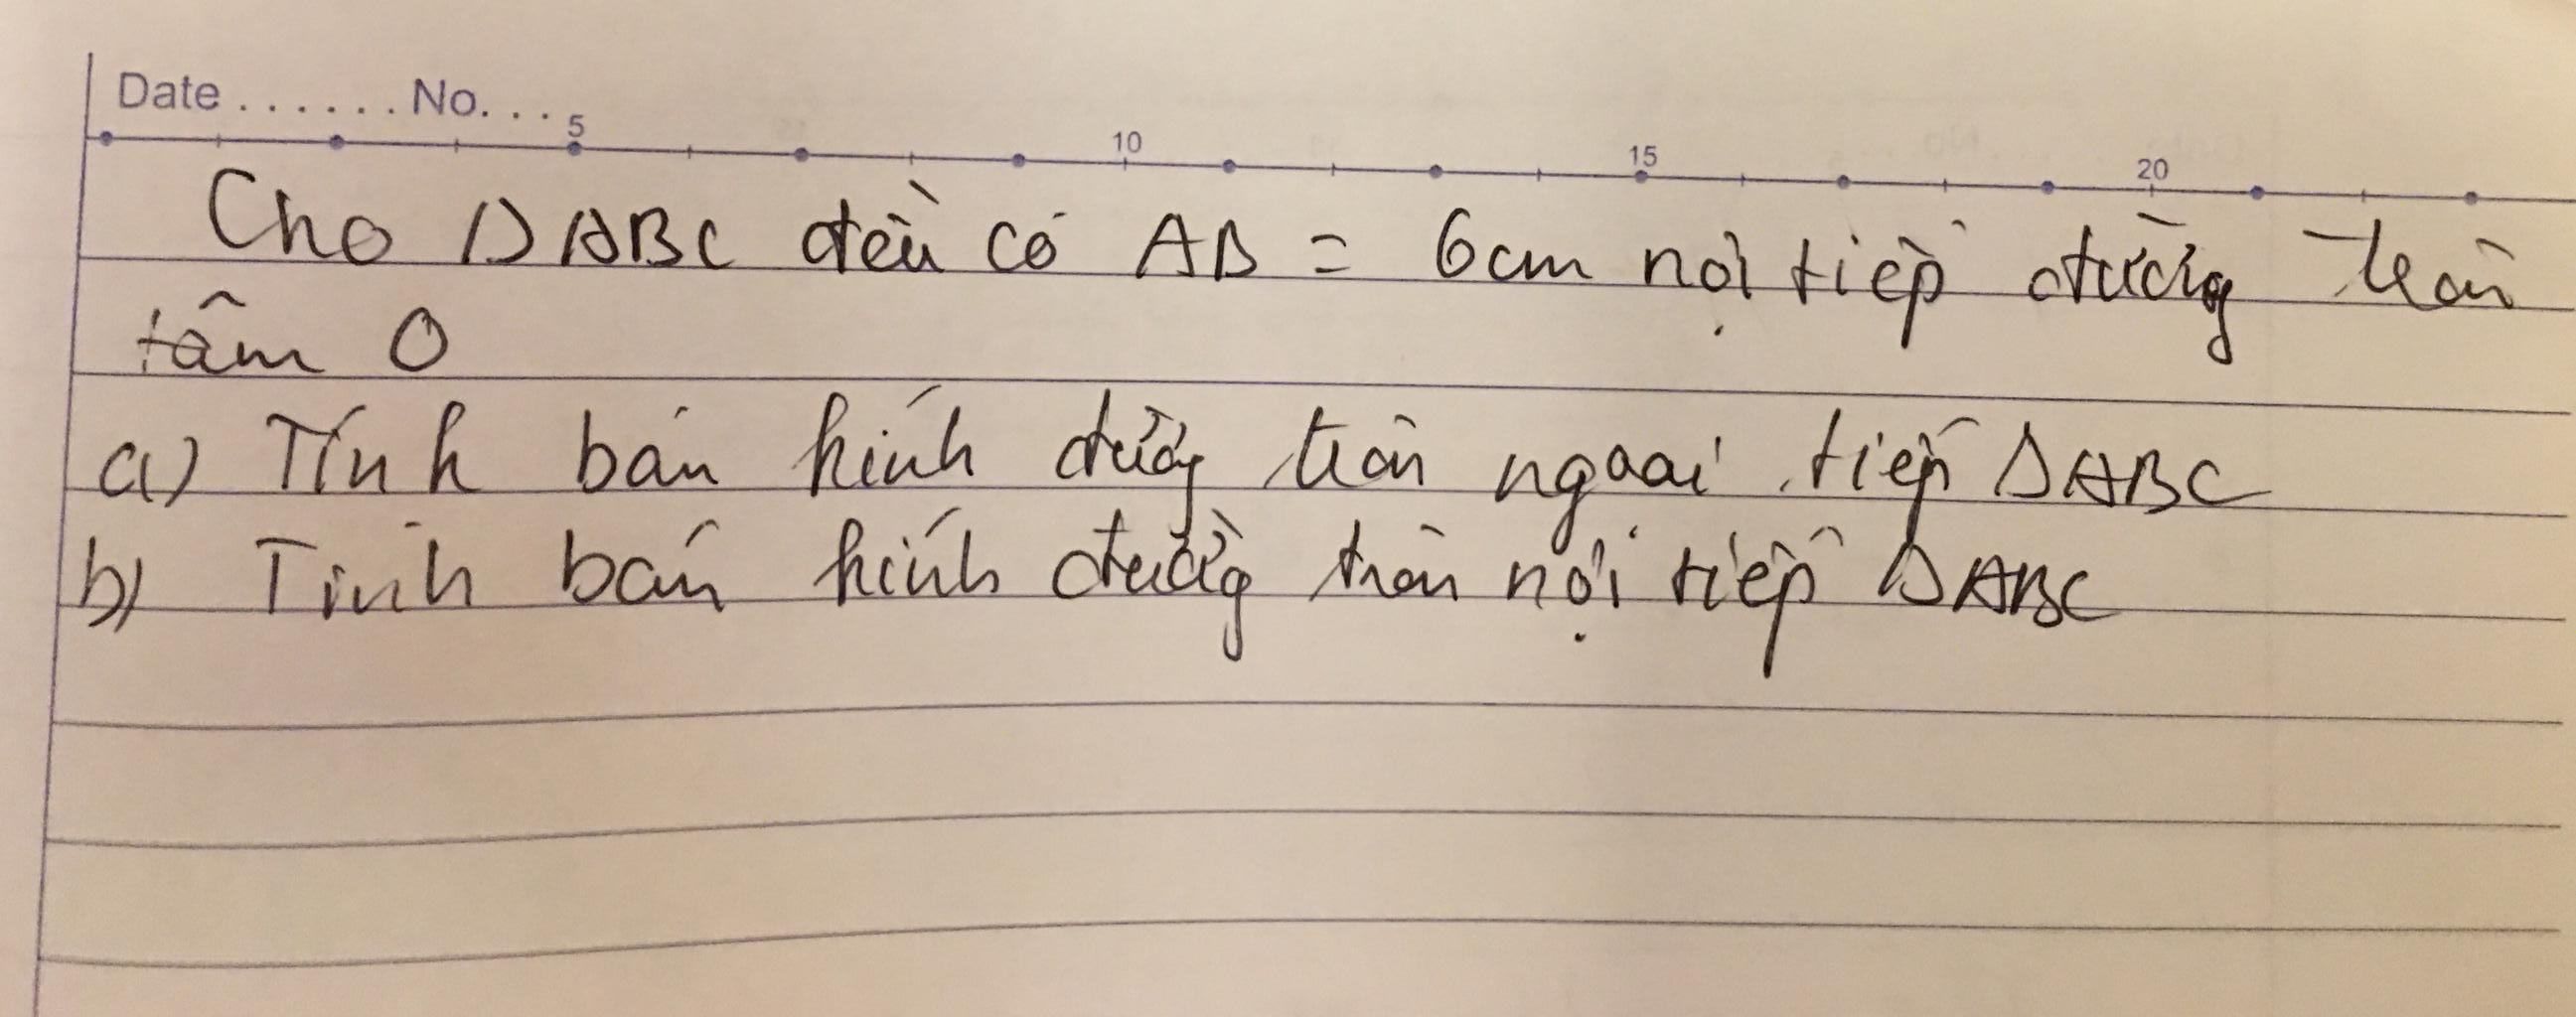 Date ...... No. ...
5 10 15 20
Cho ΔABC đều có AB = 6cm nội tiếp đường tròn
tâm O
a) Tính bán kính đường tròn ngoại tiếp ΔABC
b) Tính bán kính đường tròn nội tiếp ΔABC